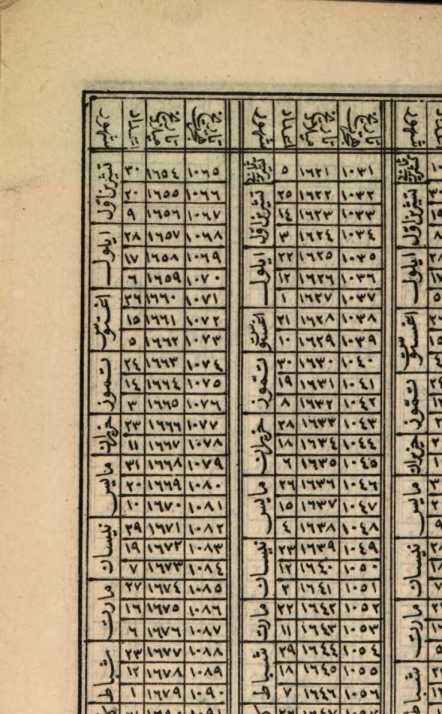 تاريخ هجرى تاريخ ميلادى
١٠٣١ ١٦٢١ ٥ تشرين ثانى
١٠٣٢ ١٦٢٢ ٢٥ تشرين اول
١٠٣٣ ١٦٢٣ ١٤
١٠٣٤ ١٦٢٤ ٣
١٠٣٥ ١٦٢٥ ٢٢ ايلول
١٠٣٦ ١٦٢٦ ١٢
١٠٣٧ ١٦٢٧ ١
١٠٣٨ ١٦٢٨ ٢١ اغستوس
١٠٣٩ ١٦٢٩ ١٠
١٠٤٠ ١٦٣٠ ٣٠ تموز
١٠٤١ ١٦٣١ ١٩
١٠٤٢ ١٦٣٢ ٨
١٠٤٣ ١٦٣٣ ٢٨ حزيران
١٠٤٤ ١٦٣٤ ١٨
١٠٤٥ ١٦٣٥ ٦
١٠٤٦ ١٦٣٦ ٢٦ مايس
١٠٤٧ ١٦٣٧ ١٥
١٠٤٨ ١٦٣٨ ٤
١٠٤٩ ١٦٣٩ ٢٣ نيسان
١٠٥٠ ١٦٤٠ ١٢
١٠٥١ ١٦٤١ ٢
١٠٥٢ ١٦٤٢ ٢٢ مارت
١٠٥٣ ١٦٤٣ ١١
١٠٥٤ ١٦٤٤ ٢٩ شباط
١٠٥٥ ١٦٤٥ ١٨
١٠٥٦ ١٦٤٦ ٧
تاريخ هجرى تاريخ ميلادى
١٠٦٥ ١٦٥٤ ٣٠ تشرين اول
١٠٦٦ ١٦٥٥ ٢٠
١٠٦٧ ١٦٥٦ ٩
١٠٦٨ ١٦٥٧ ٢٨ ايلول
١٠٦٩ ١٦٥٨ ١٧
١٠٧٠ ١٦٥٩ ٦
١٠٧١ ١٦٦٠ ٢٦ اغستوس
١٠٧٢ ١٦٦١ ١٥
١٠٧٣ ١٦٦٢ ٥
١٠٧٤ ١٦٦٣ ٢٤ تموز
١٠٧٥ ١٦٦٤ ١٤
١٠٧٦ ١٦٦٥ ٣
١٠٧٧ ١٦٦٦ ٢٣ حزيران
١٠٧٨ ١٦٦٧ ١١
١٠٧٩ ١٦٦٨ ٣١ مايس
١٠٨٠ ١٦٦٩ ٢٠
١٠٨١ ١٦٧٠ ١٠
١٠٨٢ ١٦٧١ ٢٩ نيسان
١٠٨٣ ١٦٧٢ ١٩
١٠٨٤ ١٦٧٣ ٧
١٠٨٥ ١٦٧٤ ٢٧ مارت
١٠٨٦ ١٦٧٥ ١٦
١٠٨٧ ١٦٧٦ ٦
١٠٨٨ ١٦٧٧ ٢٣ شباط
١٠٨٩ ١٦٧٨ ١٢
١٠٩٠ ١٦٧٩ ١